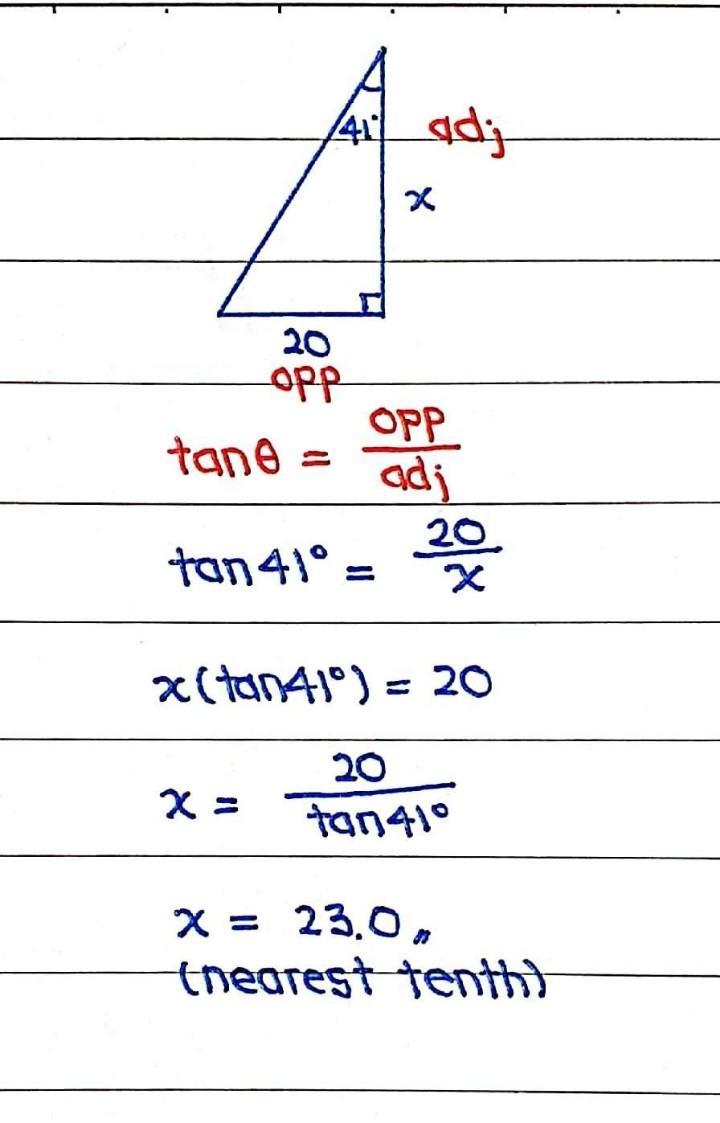 41°
adj
x
20
opp
tanθ = opp/adj
tan41° = 20/x
x(tan41°) = 20
x = 20/tan41°
x = 23.0〃
(nearest tenth)